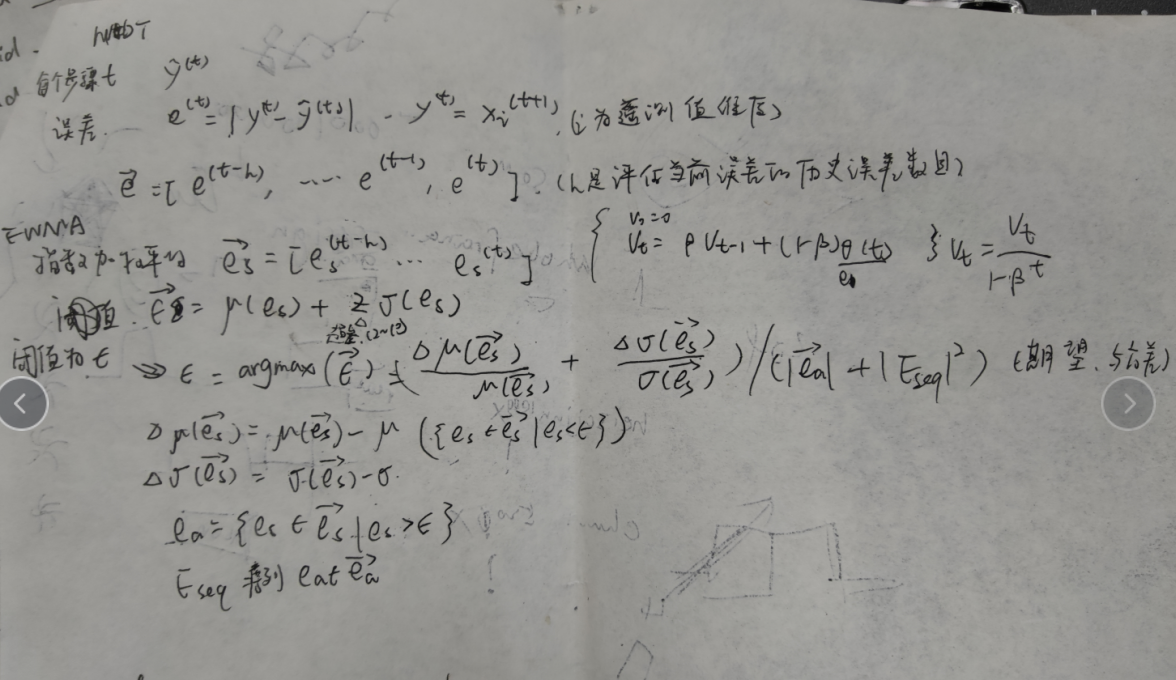 每个步骤t ŷ^(t)
误差. e^(t) = |y^(t) - ŷ^(t)| . y^(t) = x_i^(t+1). (i为遥测值维度)
e⃗ = [e^(t-h), ... e^(t-1), e^(t)]. (h是评估当前误差的历史误差数目)
EWMA
指数加权平均 e⃗s = [es^(t-h) ... es^(t)] { V0=0
Vt = βVt-1 + (1-β)θ(t) } Vt = Vt / 1-β^t
阈值. ε⃗ = μ(es) + zσ(es)
阈值为ε ⇒ ε = argmax(ε⃗) = (Δμ(e⃗s) / μ(e⃗s) + Δσ(e⃗s) / σ(e⃗s)) / (|e⃗a| + |Eseq|²) (期望与方差)
Δμ(e⃗s) = μ(e⃗s) - μ({es ∈ e⃗s | es<ε})
Δσ(e⃗s) = σ(e⃗s) - σ.
ea = {es ∈ e⃗s | es>ε}
Eseq 序列 ea∈e⃗a